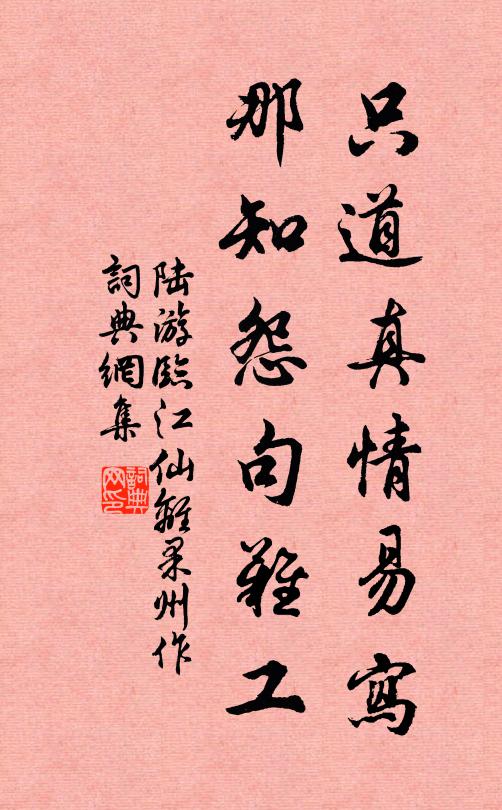 只道真情易寫
那知怨句難工
陆游臨江仙離果州作
詞典網集
詞典網印